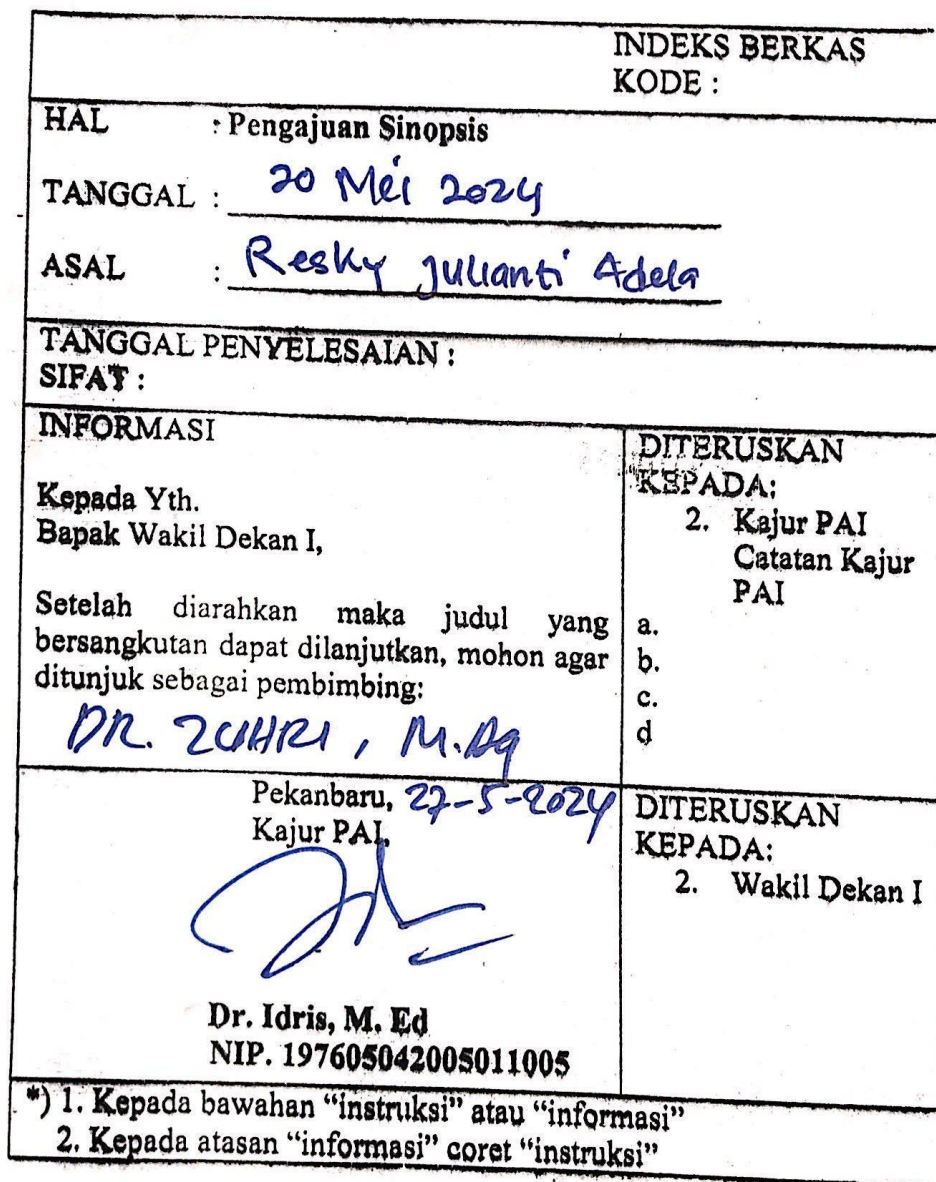 INDEKS BERKAS
KODE :
HAL : Pengajuan Sinopsis
TANGGAL : 20 Mei 2024
ASAL : Resky Julianti Adela
TANGGAL PENYELESAIAN :
SIFAT :
INFORMASI
Kepada Yth.
Bapak Wakil Dekan I,
Setelah diarahkan maka judul yang
bersangkutan dapat dilanjutkan, mohon agar
ditunjuk sebagai pembimbing:
DR. ZUHRI, M.Ag
DITERUSKAN
KEPADA:
2. Kajur PAI
Catatan Kajur
PAI
a.
b.
c.
d
Pekanbaru, 27-5-2024
Kajur PAI,
Dr. Idris, M. Ed
NIP. 197605042005011005
DITERUSKAN
KEPADA:
2. Wakil Dekan I
*) 1. Kepada bawahan “instruksi” atau “informasi”
2. Kepada atasan “informasi” coret “instruksi”